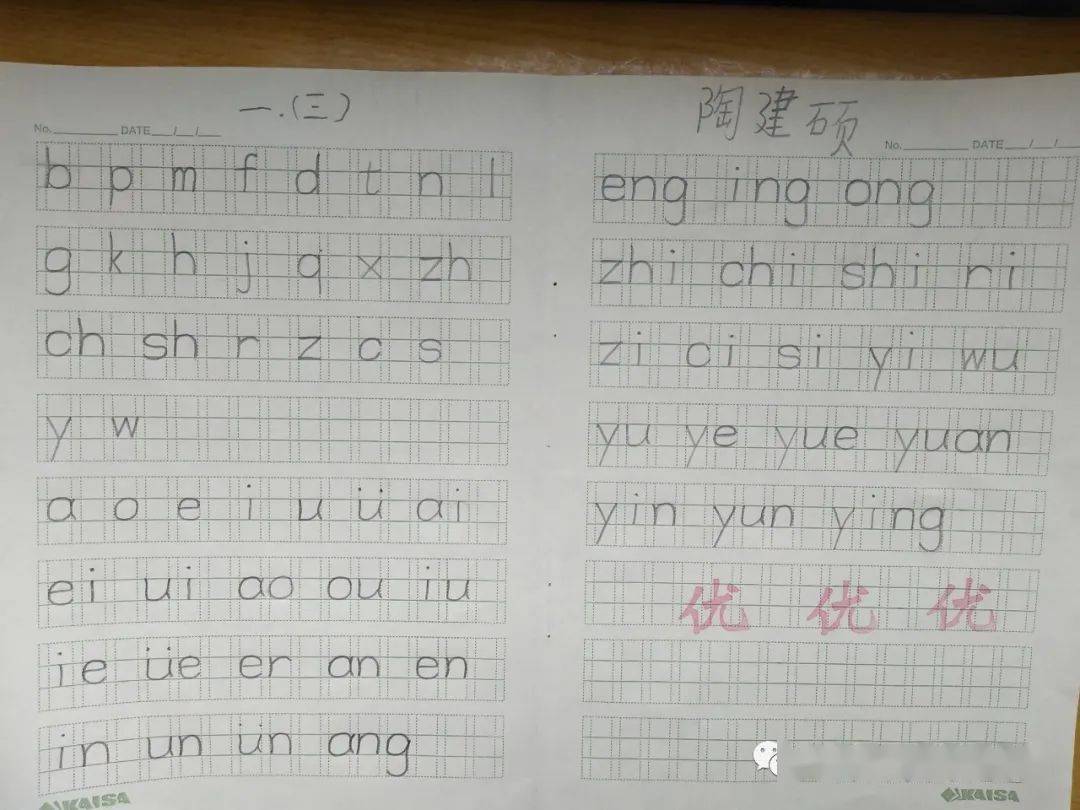 一.(三)
No. DATE / /
b p m f d t n l
g k h j q x zh
ch sh r z c s
y w
a o e i u ü ai
ei ui ao ou iu
ie üe er an en
in un ün ang
KAISA
陶建硕
No. DATE / /
eng ing ong
zhi chi shi ri
zi ci si yi wu
yu ye yue yuan
yin yun ying
优 优 优
KAISA